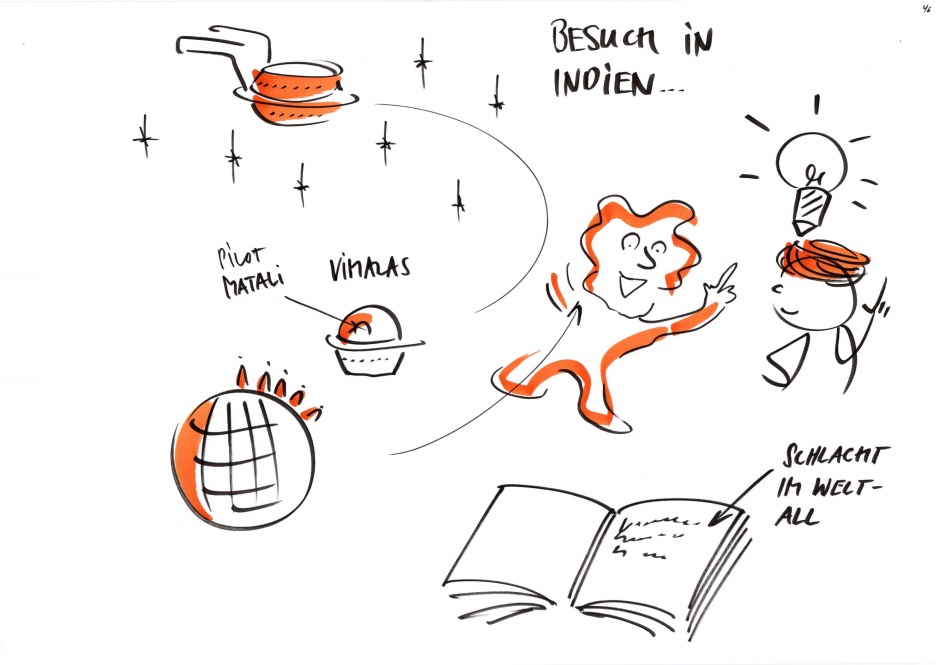 4/6
BESUCH IN
INDIEN...
PILOT
MATALI
VIMALAS
SCHLACHT
IM WELT-
ALL